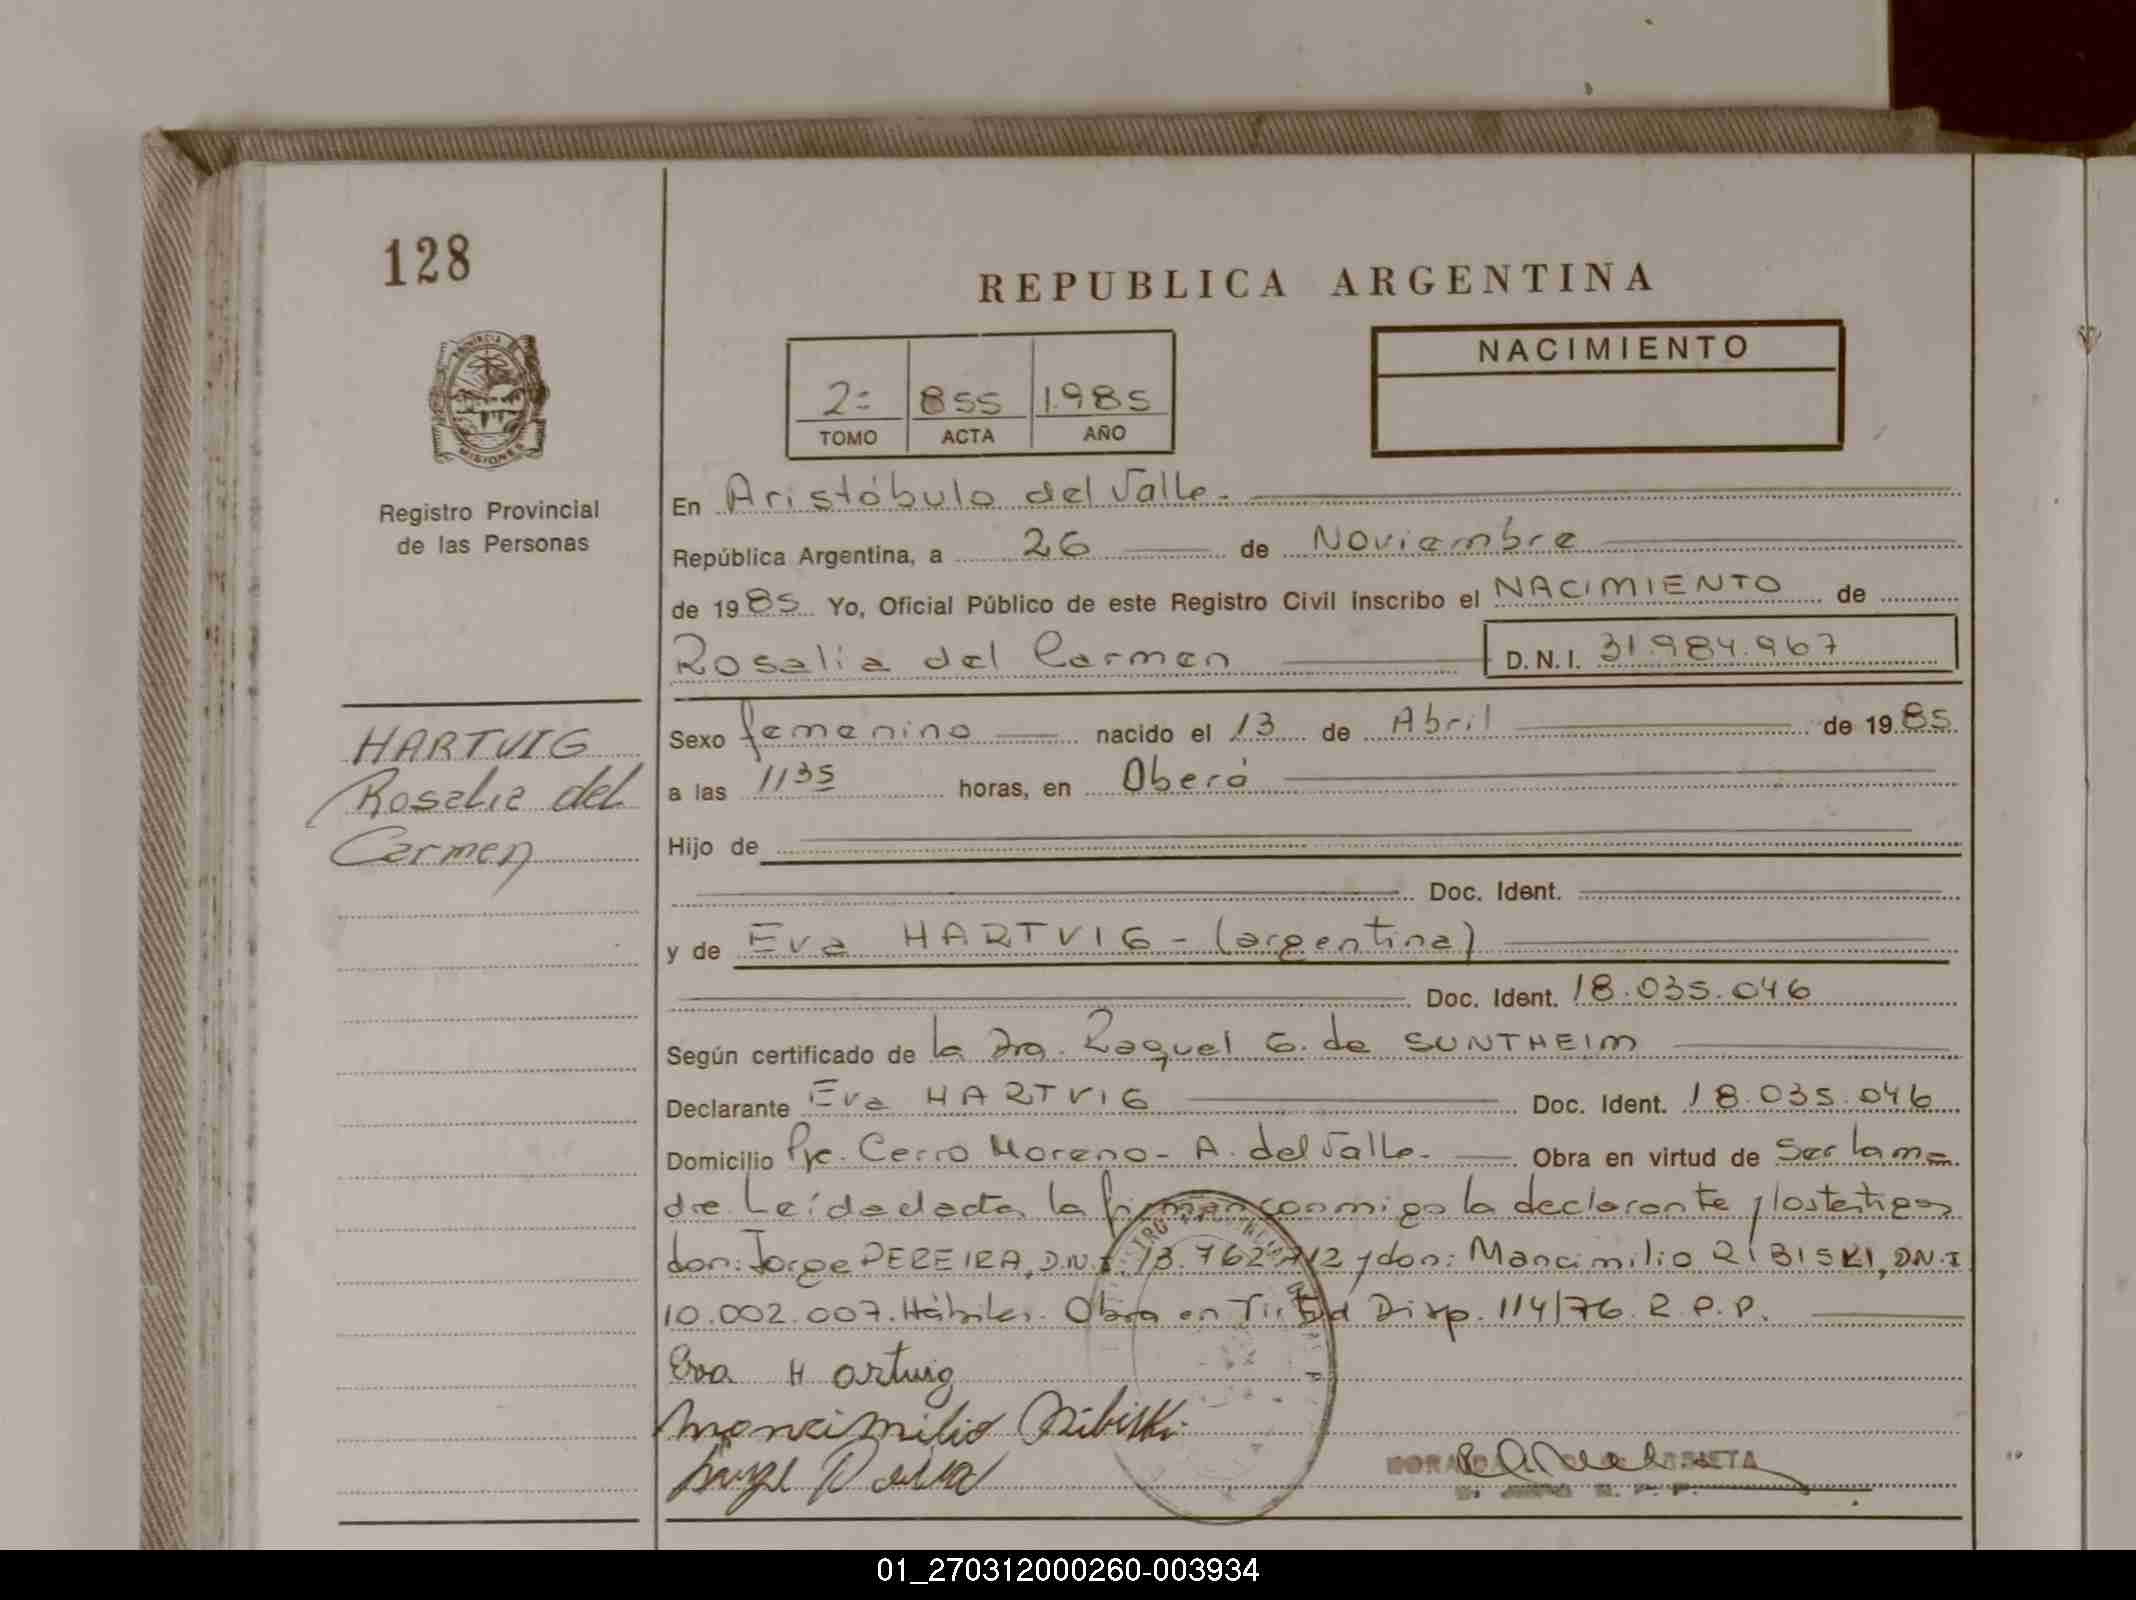 128
REPUBLICA ARGENTINA
NACIMIENTO
2= 855 1.985
TOMO ACTA AÑO
PROVINCIA DE
MISIONES
Registro Provincial
de las Personas
En Aristóbulo del Valle.
República Argentina, a 26 de Noviembre
de 1985 Yo, Oficial Público de este Registro Civil inscribo el NACIMIENTO de
Rosalia del Carmen D.N.I. 31.984.967
HARTVIG
Rosalia del
Carmen
Sexo femenino nacido el 13 de Abril de 1985
a las 1135 horas, en Oberá
Hijo de
Doc. Ident.
y de Eva HARTVIG - (argentina)
Doc. Ident. 18.035.046
Según certificado de la Dra. Raquel G. de SUNTHEIM
Declarante Eva HARTVIG Doc. Ident. 18.035.046
Domicilio Pje. Cerro Moreno - A. del Valle. Obra en virtud de Ser la ma=
dre Leída el acta, la firman conmigo la declarante y los testigos
don: Jorge PEREIRA, D.N.I. 13.762.712 y don: Mancimilio RIBISKI, DN.I
10.002.007. Hábiles. Obra en Virtud Disp. 114/76 R.P.P.
Eva Hartvig
Mancimilio Ribiski
Jorge Pereira
01_270312000260-003934